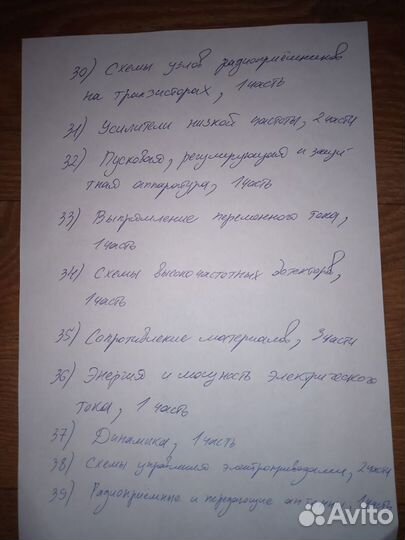 30) Схемы узлов радиоприёмников
на транзисторах, 1 часть
31) Усилители низкой частоты, 2 части
32) Пусковая, регулирующая и защи-
тная аппаратура, 1 часть
33) Выпрямление переменного тока,
1 часть
34) Схемы высокочастотных детекторов,
1 часть
35) Сопротивление материалов, 3 части
36) Энергия и мощность электрического
тока, 1 часть
37) Динамика, 1 часть
38) Схемы управления электроприводами, 2 части
39) Радиоприемные и передающие антенны, 1 часть
Avito